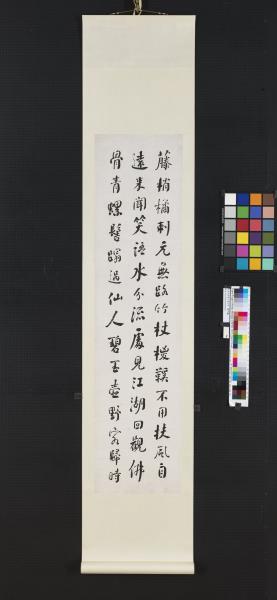 藤梢橘刺元無路竹杖椶鞵不用扶風自
遠来聞笑語水分流處見江湖回觀佛
骨青螺髻蹋過仙人碧玉壺野客歸時